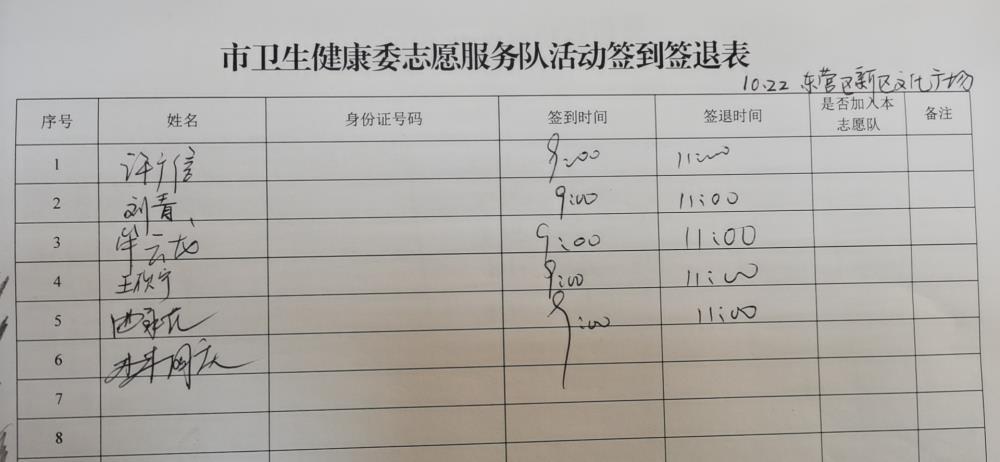 市卫生健康委志愿服务队活动签到签退表
10.22 东营区新区文化广场
序号 姓名 身份证号码 签到时间 签退时间 是否加入本志愿队 备注
1 许广信 9:00 11:00
2 刘青 9:00 11:00
3 9:00 11:00
4 王欣宁 9:00 11:00
5 9:00 11:00
6
7
8